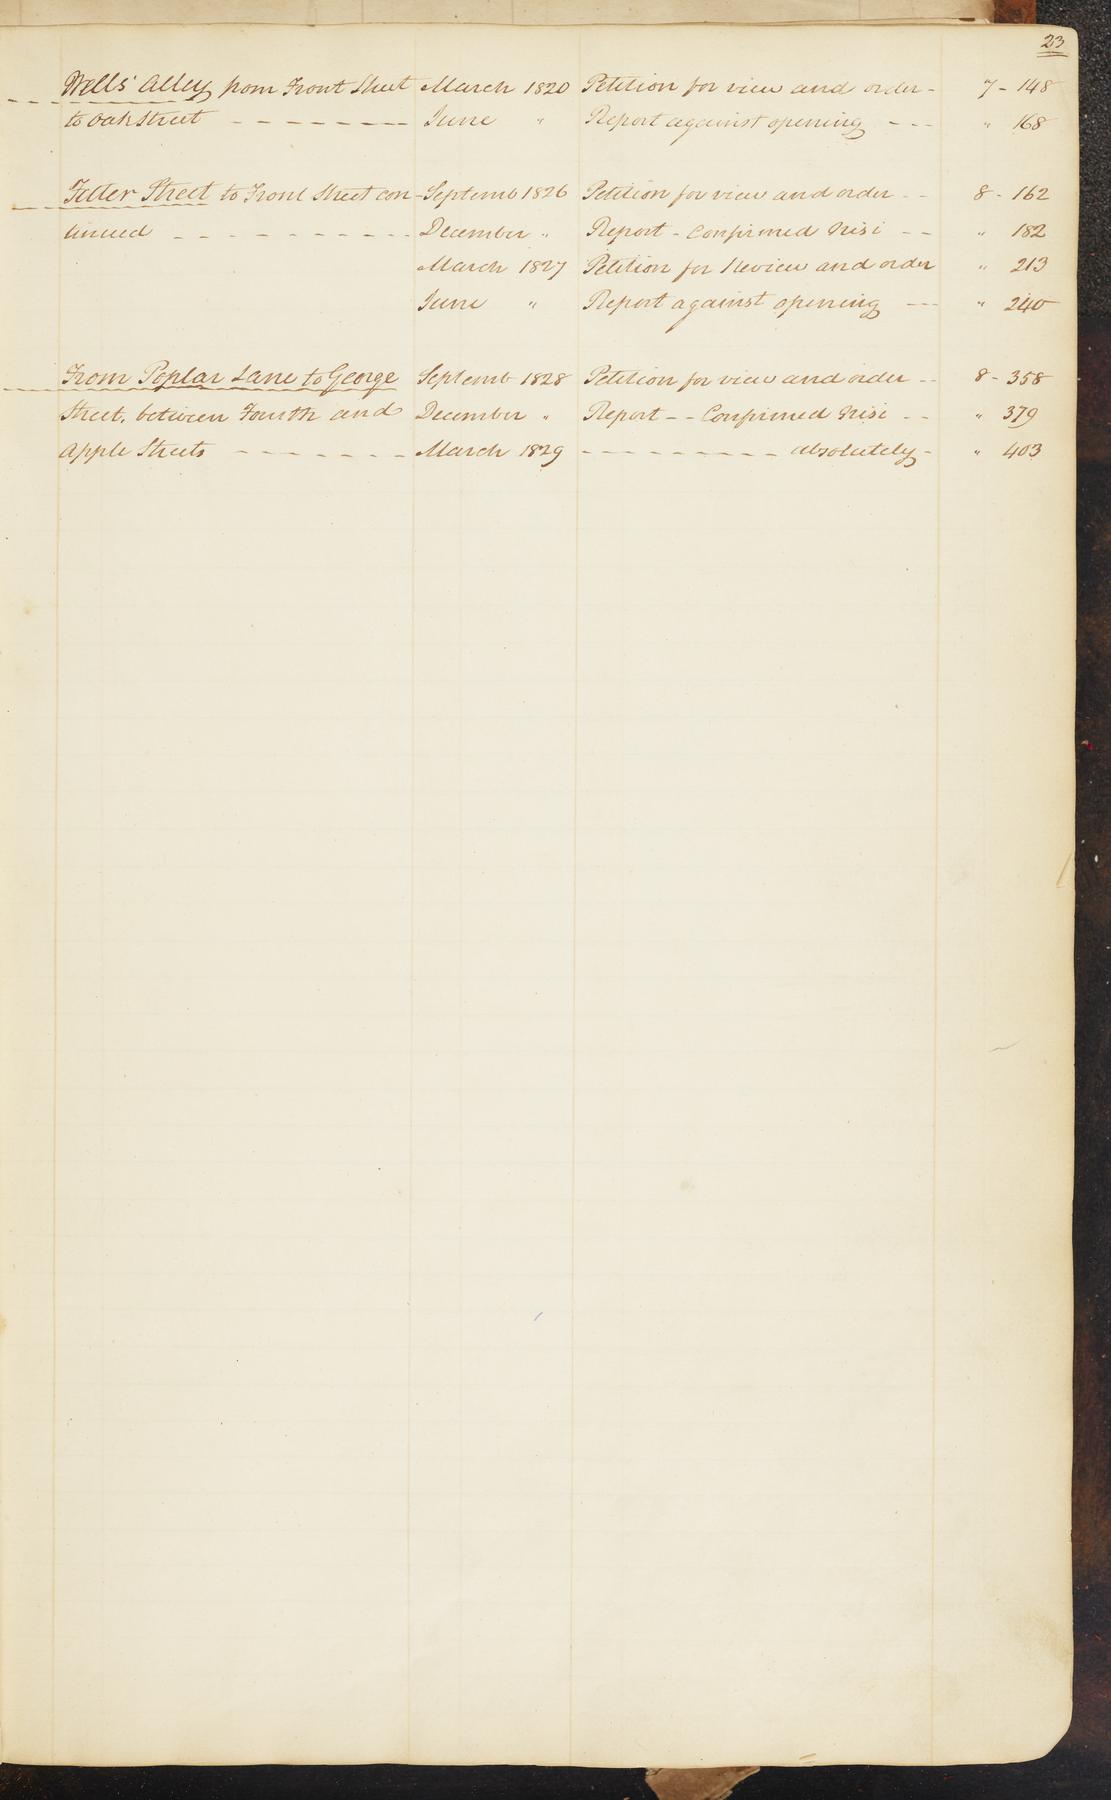 23
Wells' Alley from Front Street March 1820 Petition for view and order - 7 - 148
to Oak Street - - - - - - - - June " Report against opening - - - " 168
Fetter Street to Front Street con- Septemb 1826 Petition for view and order - - 8 - 162
tinued - - - - - - - - - December " Report - Confirmed Nisi - - " 182
March 1827 Petition for Review and order " 213
June " Report against opening - - - " 240
From Poplar Lane to George Septemb 1828 Petition for view and order - - 8 - 358
Street, between Fourth and December " Report - - Confirmed Nisi - - " 379
Apple Streets - - - - - - - March 1829 - - - - - - - - - - absolutely - " 403